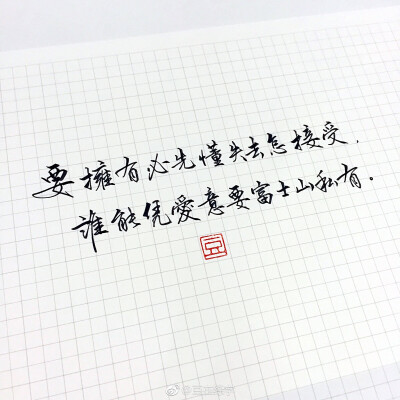 要擁有必先懂失去怎接受，
誰能凭愛意要富士山私有。